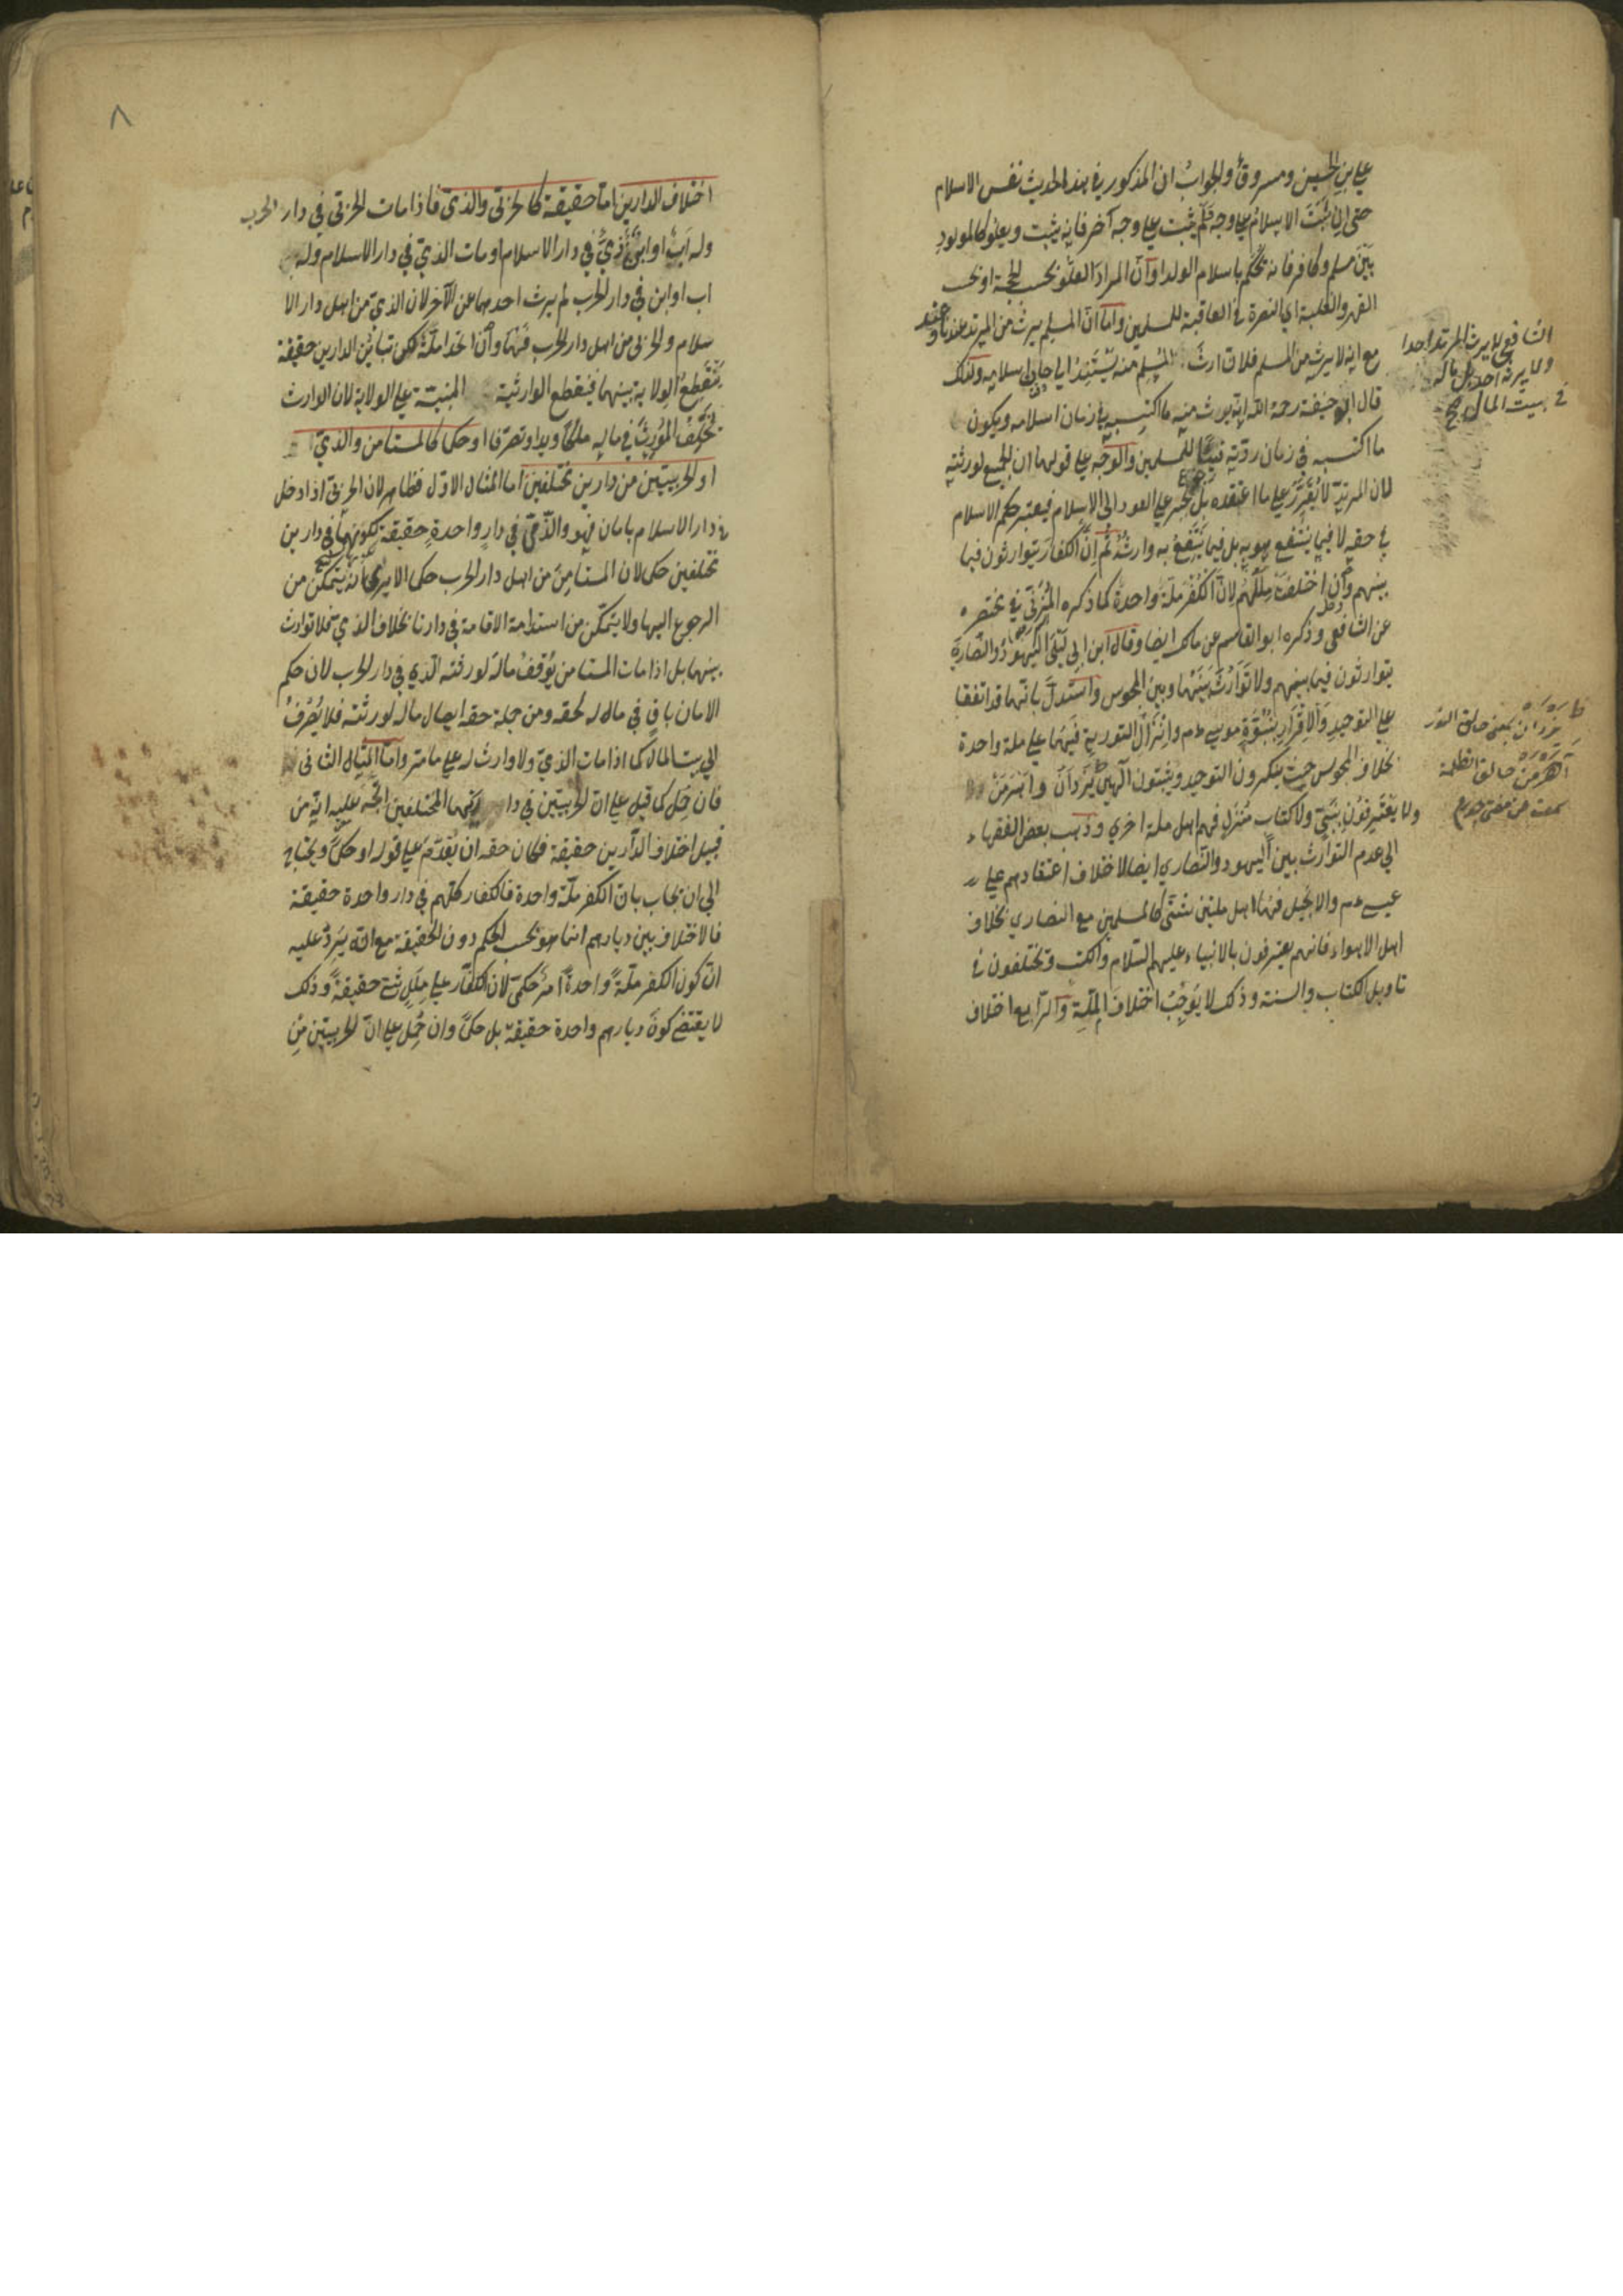 علي بن الحسين ومسروق والجواب ان المذكور في هذا الحديث نفس الاسلام
حتى ان ثبت الاسلام علي وجه ولم يثبت علي وجه آخر فانه يثبت ويعلو كالمولود
بين مسلم وكافر فانه يحكم باسلام الولد او ان المراد العلو بحسب الحجة او بحسب
القهر والغلبة اي النصرة في العاقبة للمسلمين واما ان المسلم يرث من المرتد عندنا وعند
مع انه لا يرث من المسلم فلان ارث المسلم منه يستند الي حال اسلامه ولذلك
قال ابو حنيفة رحمة الله انه يورث منه ما اكتسبه في زمان اسلامه ويكون
ما اكتسبه في زمان ردته فيئا للمسلمين والوجه علي قولهما ان الجميع لورثته
لان المرتد لا يقرر علي ما اعتقده بل يجبر علي العود الى الاسلام فيعتبر حكم الاسلام
في حقه لا فيما ينتفع هو به بل فيما ينتفع به وارثه ثم ان الكفار يتوارثون فيما
بينهم وان اختلفت مللهم لان الكفر ملة واحدة كما ذكره المزني في مختصره
عن الشافعي وذكره ابو القاسم عن مالك ايضا وقال ابن ابي ليلى اليهود والنصاري
يتوارثون فيما بينهم ولا توارث بينهما وبين المجوس واستدل بانهما قد اتفقا
علي التوحيد والاقرار بنبوة موسي عم وانزال التورية فهما علي ملة واحدة
بخلاف المجوس حيث ينكرون التوحيد ويثبتون آلهين يزدان واهرمن
ولا يعترفون بنبي ولا كتاب منزل فهم اهل ملة اخري وذهب بعض الفقهاء
الي عدم التوارث بين اليهود والنصاري ايضا لاختلاف اعتقادهم علي
عيسي عم والانجيل فهما اهل ملتين شتى كالمسلمين مع النصاري بخلاف
اهل الاهواء فانهم يعترفون بالانبياء عليهم السلام والكتب ويختلفون في
تاويل الكتاب والسنة وذلك لا يوجب اختلاف الملة والرابع اختلاف
الشافعي لا يرث المرتد احدا
ولا يرثه احد بل ماله
في بيت المال
يزدان بمعنى خالق النور
اهرمن خالق الظلمة
٨
اختلاف الدارين اما حقيقة كالحربي والذمي فاذا مات الحربي في دار الحرب
وله اب او ابن ذمي في دار الاسلام او مات الذمي في دار الاسلام وله
اب او ابن في دار الحرب لم يرث احدهما عن الآخر لان الذمي من اهل دار الا
سلام والحربي من اهل دار الحرب فهما وان اتحدا ملة لكن تباين الدارين حقيقة
ينقطع الولاية بينهما فينقطع الوارثية المبنية علي الولاية لان الوارث
يخلف المورث في ماله ملكا ويدا وتصرفا او حكما كالمستامن والذمي
او الحربيين من دارين مختلفين اما المثال الاول فظاهر لان الحربي اذا دخل
في دار الاسلام بامان فهو والذمي في دار واحدة حقيقة لكنهما في دارين
مختلفين حكما لان المستامن من اهل دار الحرب حكما الا يري انه يتمكن من
الرجوع اليها ولا يتمكن من استدامة الاقامة في دارنا بخلاف الذمي فلا توارث
بينهما بل اذا مات المستامن يوقف ماله لورثته الذي في دار الحرب لان حكم
الامان باق في ماله لحقه ومن جملة حقه ايصال ماله لورثته فلا يصرف
الي بيت المال كما اذا مات الذمي ولا وارث له علي ما مر واما المثال الثاني
فان حمل كما قيل علي ان الحربيين في دا المختلفين اتجه عليه انه من
قبيل اختلاف الدارين حقيقة فكان حقه ان يقدم علي قوله او حكما ويحتاج
الي ان يجاب بان الكفر ملة واحدة فالكفار كلهم في دار واحدة حقيقة
فالاختلاف بين ديارهم انما هو بحسب الحكم دون الحقيقة مع انه يرد عليه
ان كون الكفر ملة واحدة امر حكمي لان الكفار علي ملل شتي حقيقة وذلك
لا يقتضي كون ديارهم واحدة حقيقة بل حكما وان حمل علي ان الحربيين من